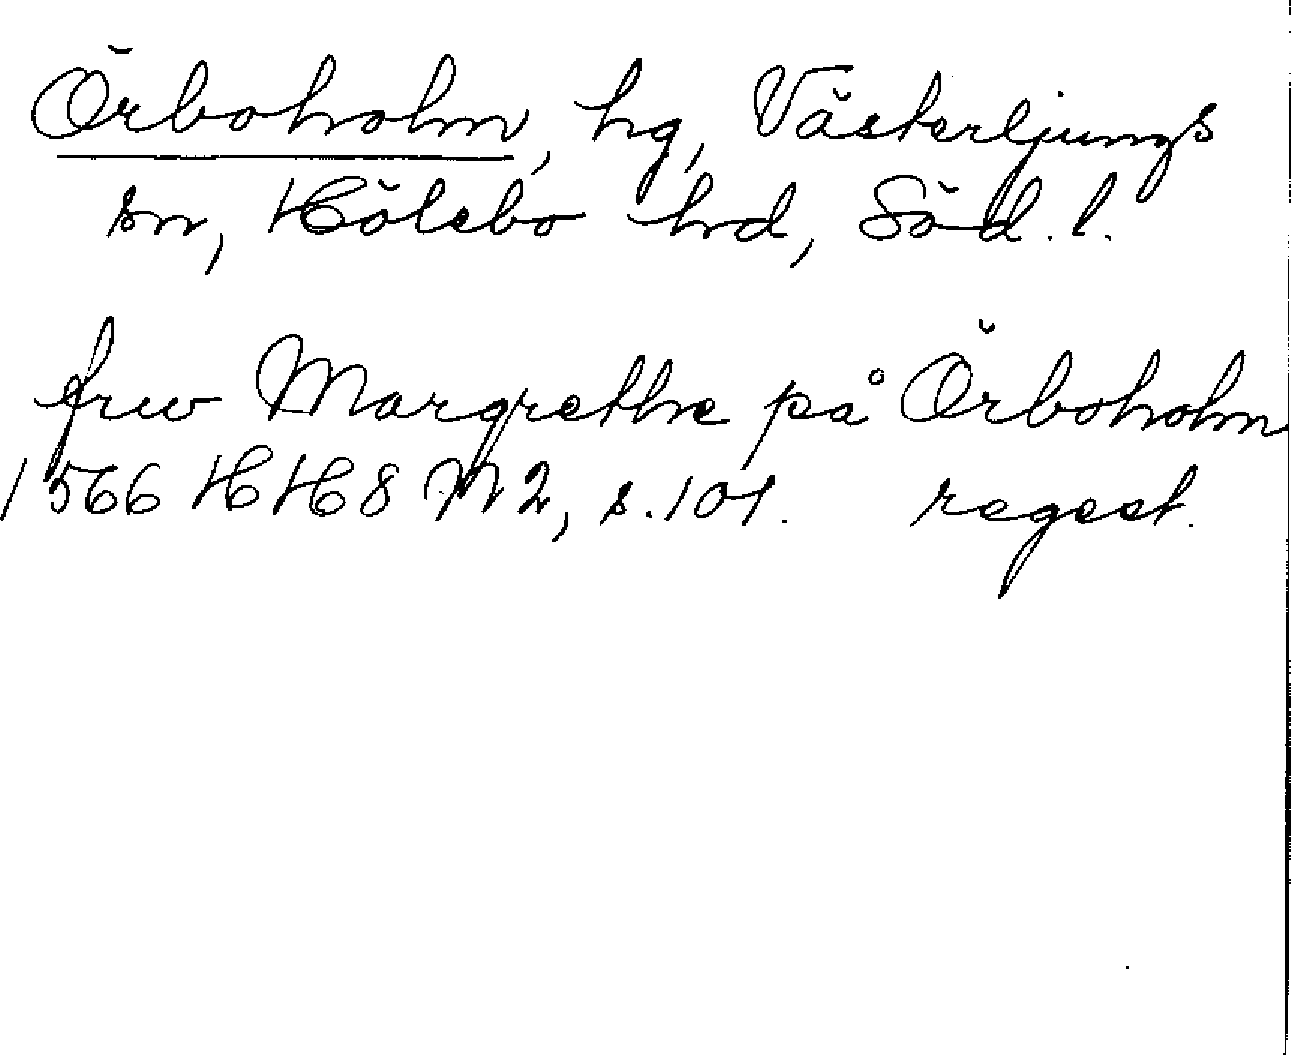 Örboholm, hg, Västerljungs
sn, Hölebo hd, Söd. l.
frw Margrethe på Örboholm
1566 HH8 M2, s. 101. regest.